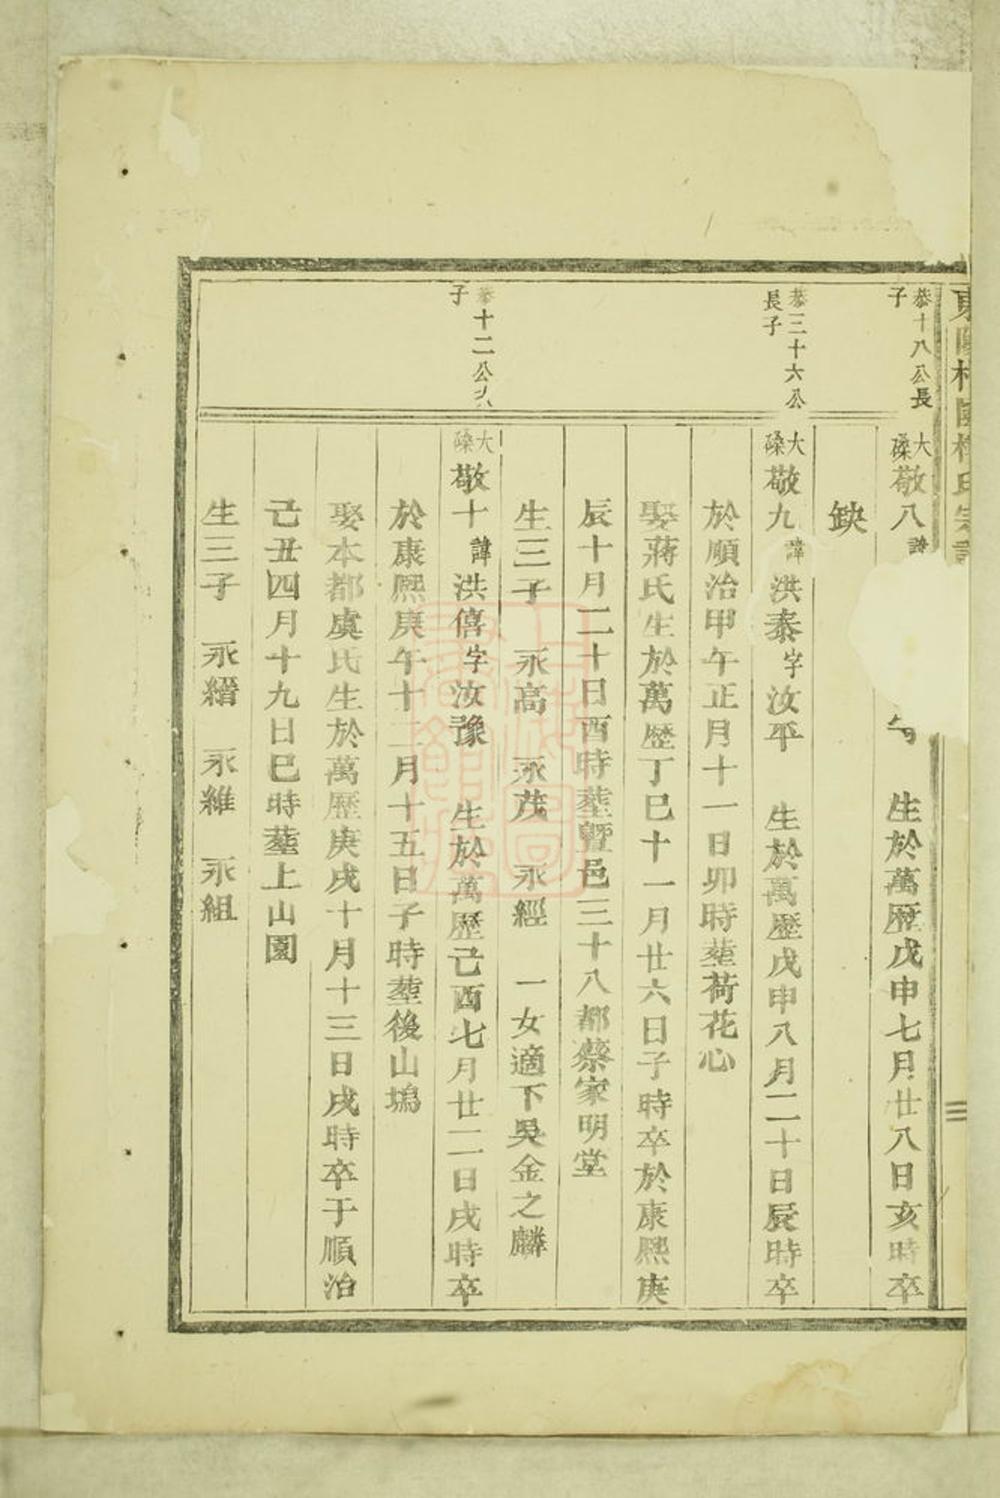 恭十八公長
子
大磉敬八諱
生於萬歴戊申七月廿八日亥時卒
缺
恭三十六公
長子
大磉敬九諱洪泰字汝平 生於萬歴戊申八月二十日辰時卒
於順治甲午正月十一日卯時塟荷花心
娶蔣氏生於萬歴丁巳十一月廿六日子時卒於康熙庚
辰十月二十日酉時塟曁邑三十八都蔡家明堂
生三子 永高 永茂 永經 一女適下吳金之麟
恭十二公
子
大磉敬十諱洪僖字汝豫 生於萬歴己酉七月廿二日戌時卒
於康熙庚午十二月十五日子時塟後山塢
娶本都虞氏生於萬歴庚戌十月十三日戌時卒于順治
己丑四月十九日巳時塟上山園
生三子 永縉 永維 永組